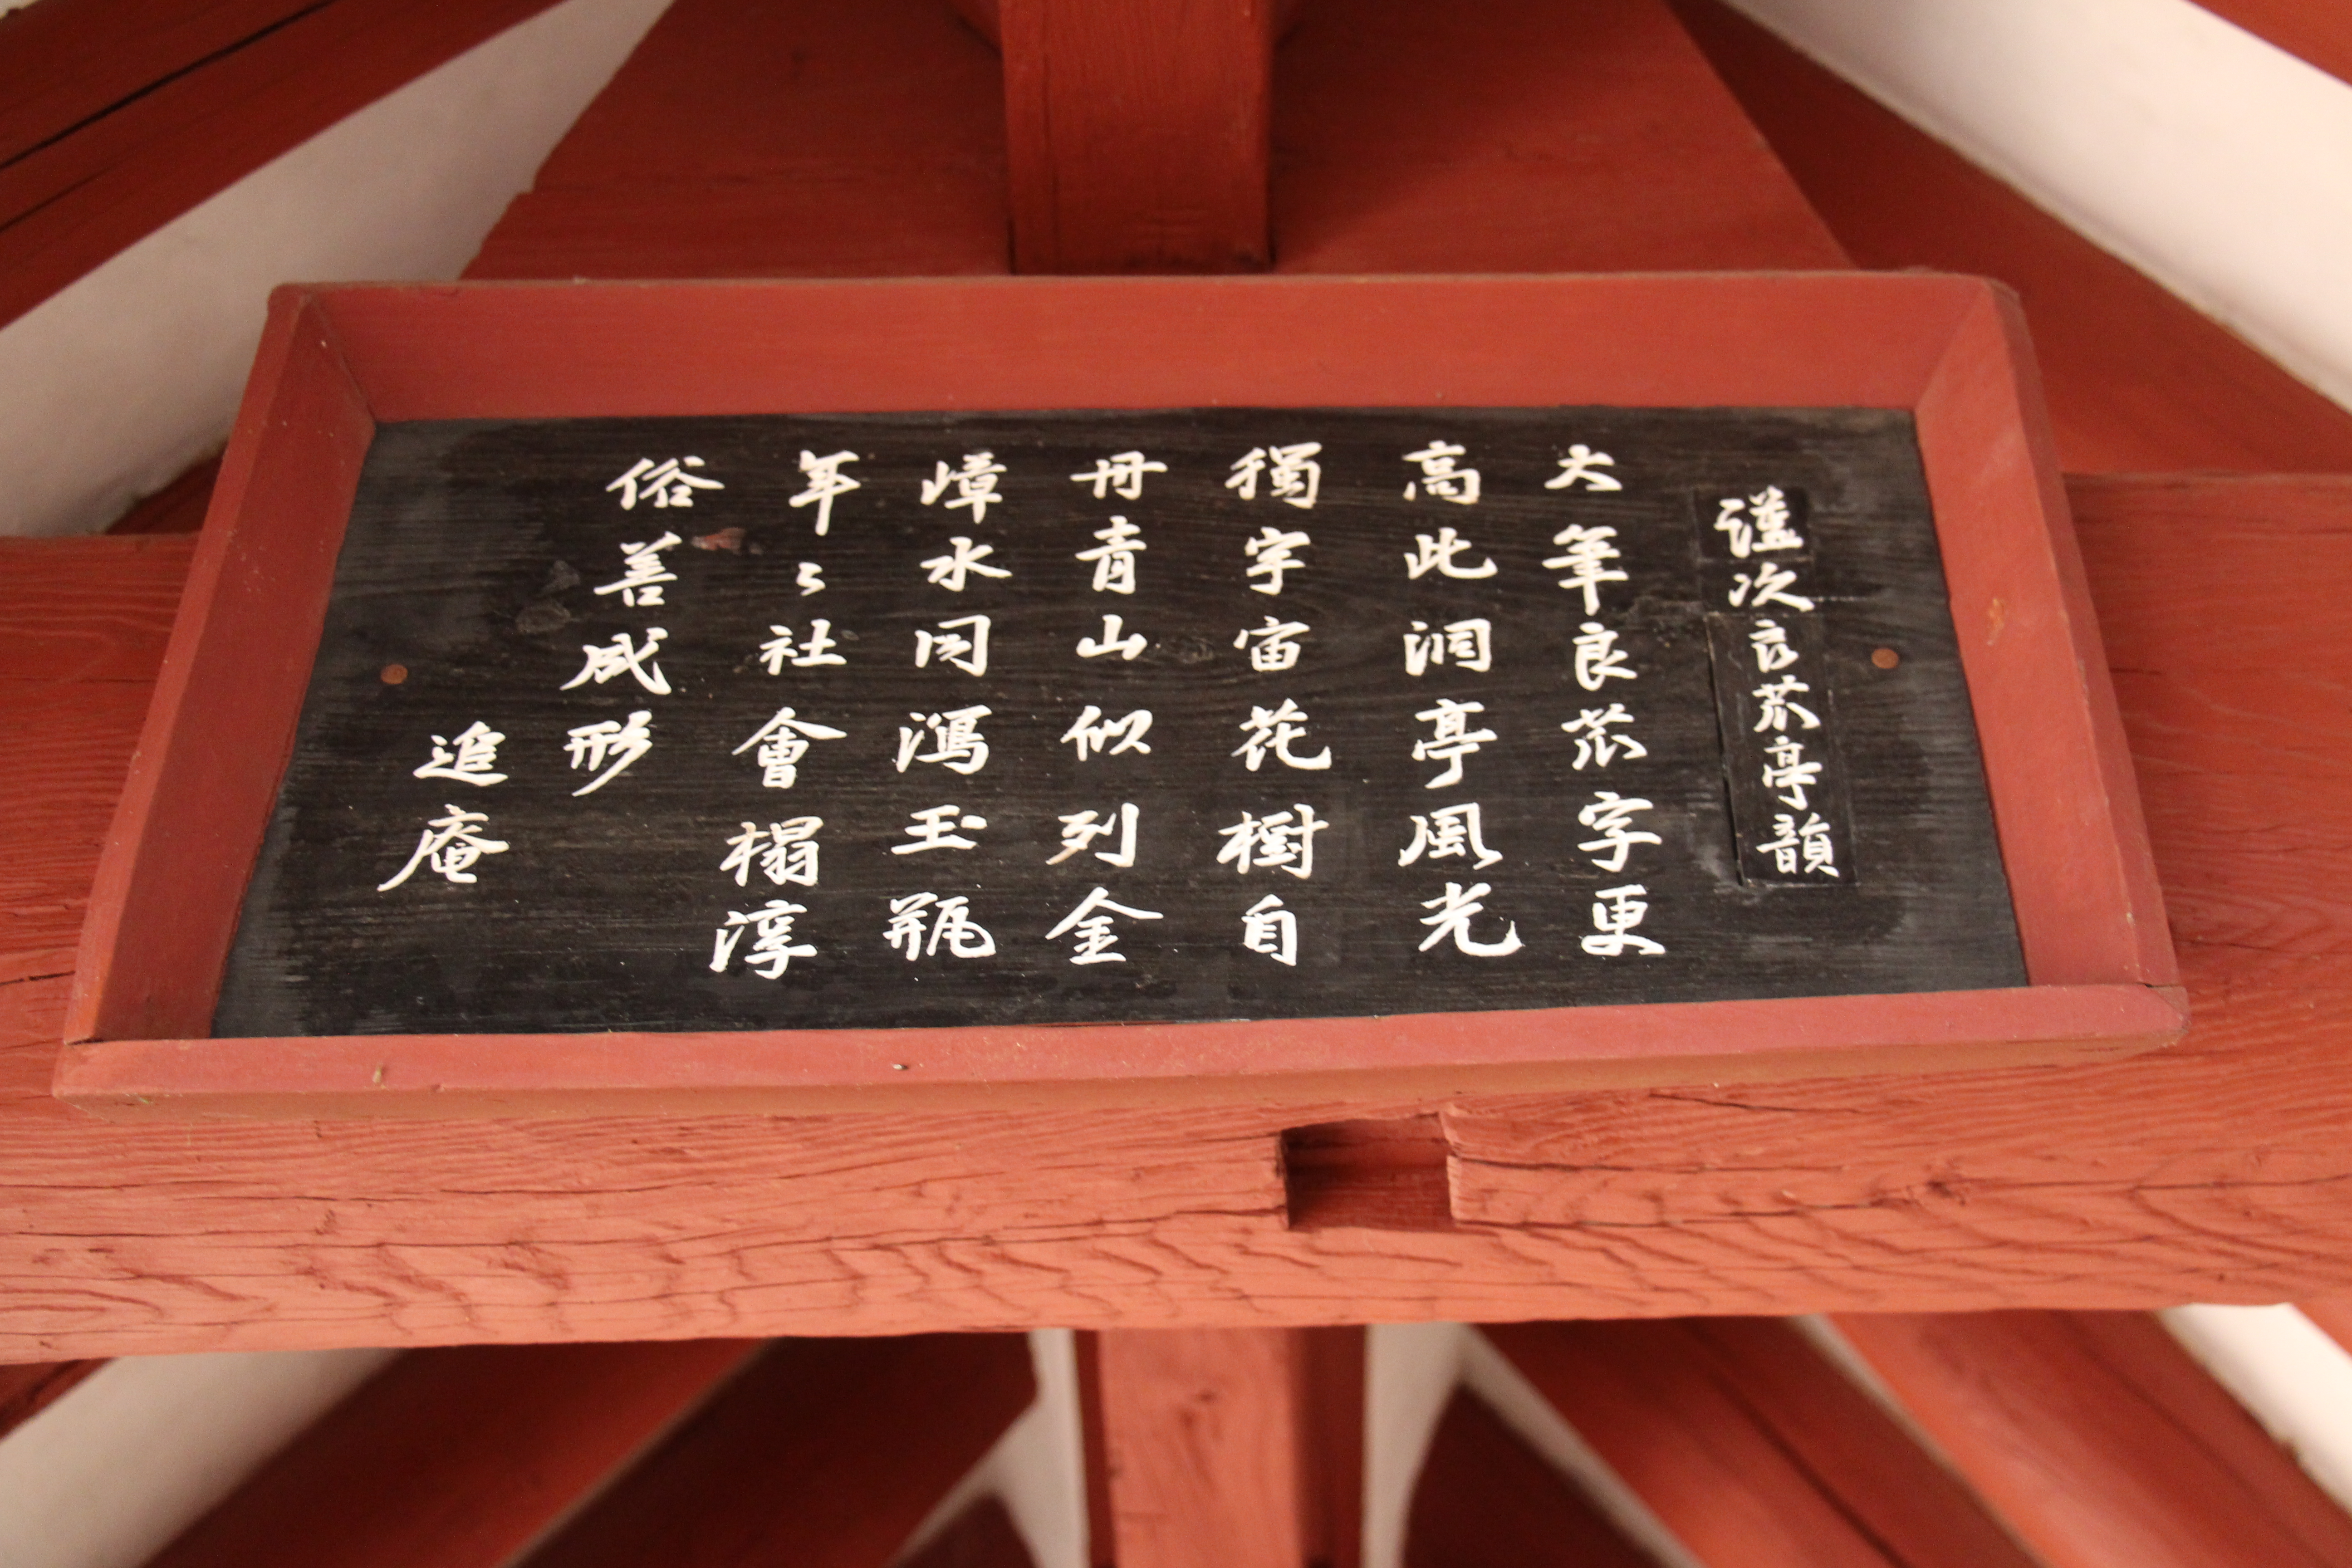 謹次良苽亭韻
大筆良苽字更
高此洞亭風光
獨宇宙花樹自
丹青山似列金
嶂水同瀉玉瓶
年〻社會榻淳
俗善成形
追庵